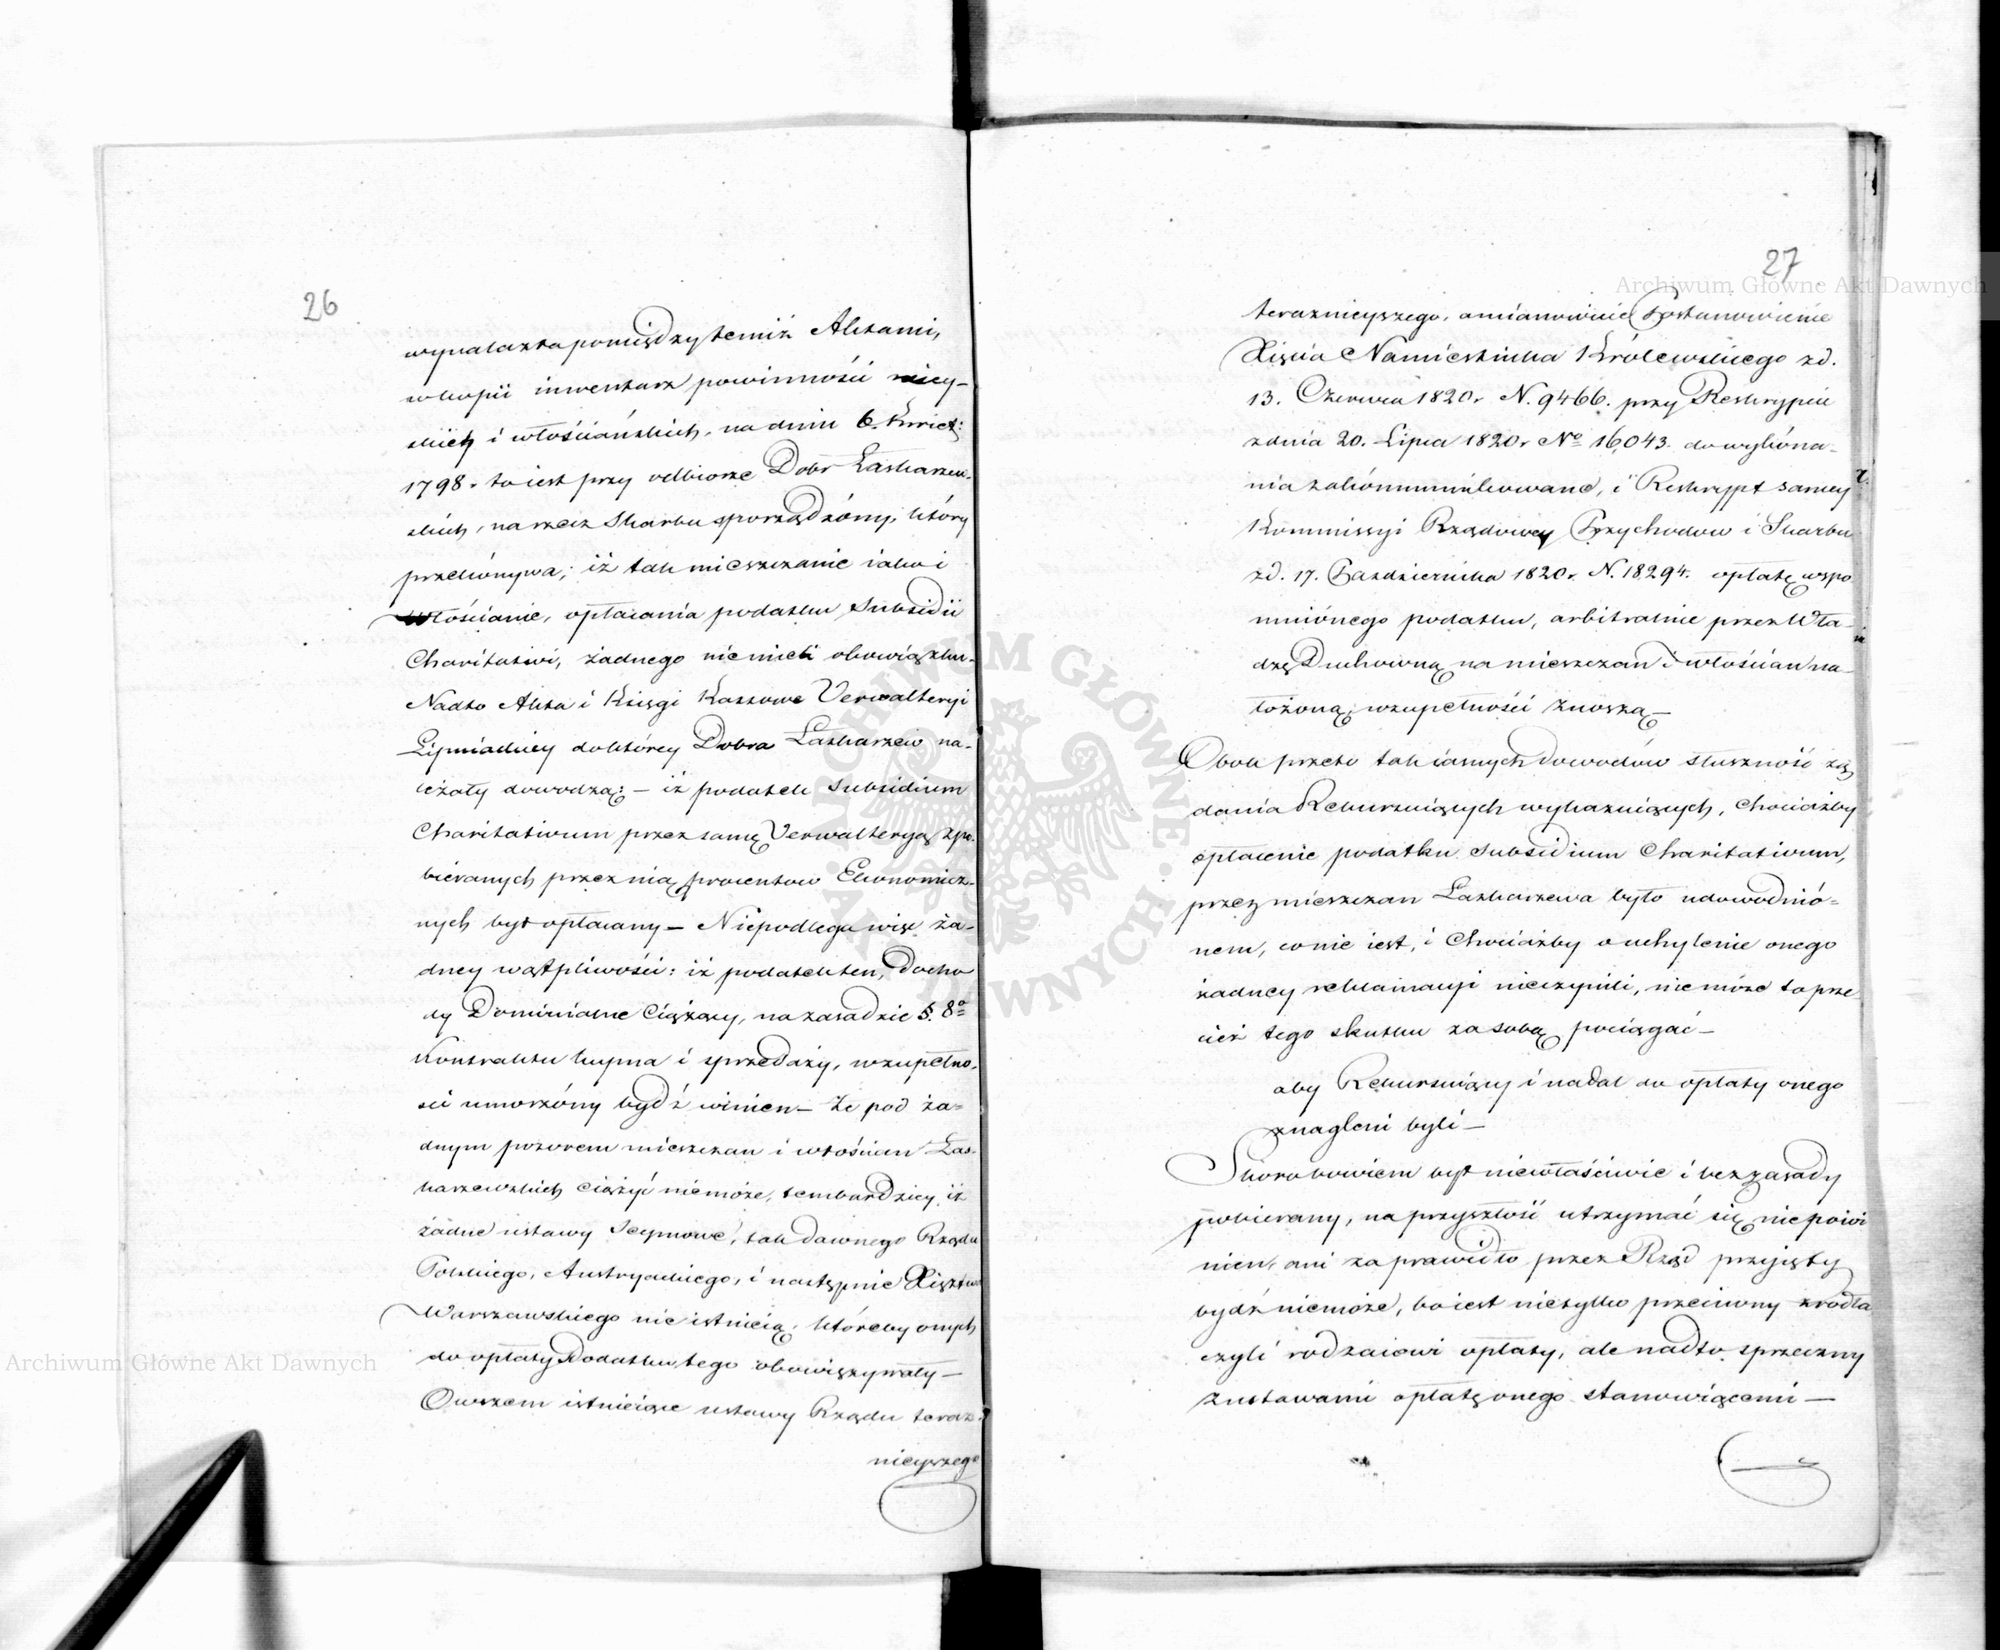 26
wynalazła pomiędzy temiż Aktami,
w kopii inwentarz powinności miey-
skich i włościańskich, na dniu 6. Kwiet:
1798. to iest przy odbiorze Dobr Łaskarzew-
skich, na rzecz Skarbu sporządzóny, który
przekónywa; iż tak mieszczanie iako i
Włościanie, opłacania podatku Subsidii
Charitativi, żadnego niemieli obowiązku.
Nadto Akta i Księgi Kassowe Verwalteryi
Lipniackiey doktórey Dobra Łaskarzew na-
leżały dowodzą: – iż podatek Subsidium
Charitativum przez samę Verwalteryą z po-
bieranych przez nią procentow Ekonomicz-
nych był opłacany – Niepodlega więc ża-
dney wątpliwości: iż podatek ten, Docho
dy Dominialne Ciążący, na zasadzie §. 8º
Kontraktu kupna i sprzedaży, wzupełno-
ści umorzóny bydź winien – Ze pod ża-
dnym pozorem mieszczan i włościan Łas-
karzewskich ciążyć niemoże, tembardziey iż
żadne ustawy Seymowe, tak dawnego Rządu
Polskiego, Austryackiego, i następnie Xięstwa
Warszawskiego nie istnieią, któreby onych
do opłaty Podatku tego obowiązywały –
Owszem istnieiące ustawy Rządu teraz-
nieyszego
27
teraznieyszego, a mianowicie Postanowienie
Xięcia Namiestnika Królewskiego zd.
13. Czerwca 1820r N. 9466. przy Reskrypcie
zdnia 20. Lipca 1820r Nº 16,043. do wykóna-
nia zakómmunikowane, i Reskrypt samey
Kommissyi Rządowey Przychodow i Skarbu
zd. 17. Pazdziernika 1820r. N. 18294. opłatę wspo
mniónego podatku, arbitralnie przez Wła-
dzę Duchowną na mieszczan i włościan na-
łożoną, wzupełności znoszą –
Obok przeto tak iasnych dowodów słuszność żą
dania Rekursuiących wykazuiących, chociażby
opłacenie podatku Subsidium Charitativum,
przez mieszczan Łaskarzewa było udowodnió-
nem, co nie iest, i chociażby o uchylenie onego
żadney reklamacyi nieczynili, nie móże to prze-
cież tego skutku za sobą pociągać –
aby Rekursuiący i nadal do opłaty onego
znagleni byli –
Skoro bowiem był niewłaściwie i bez zasady
pobierany, na przyszłość utrzymać się niepowi
nien, ani za prawidło przez Rząd przyięty
bydź niemoże, bo iest nietylko przeciwny zrodła
czyli rodzaiowi opłaty, ale nadto sprzeczny
z ustawami opłatę onego stanowiącemi –
Archiwum Główne Akt Dawnych
Archiwum Główne Akt Dawnych
ARCHIWUM GŁÓWNE AKT DAWNYCH